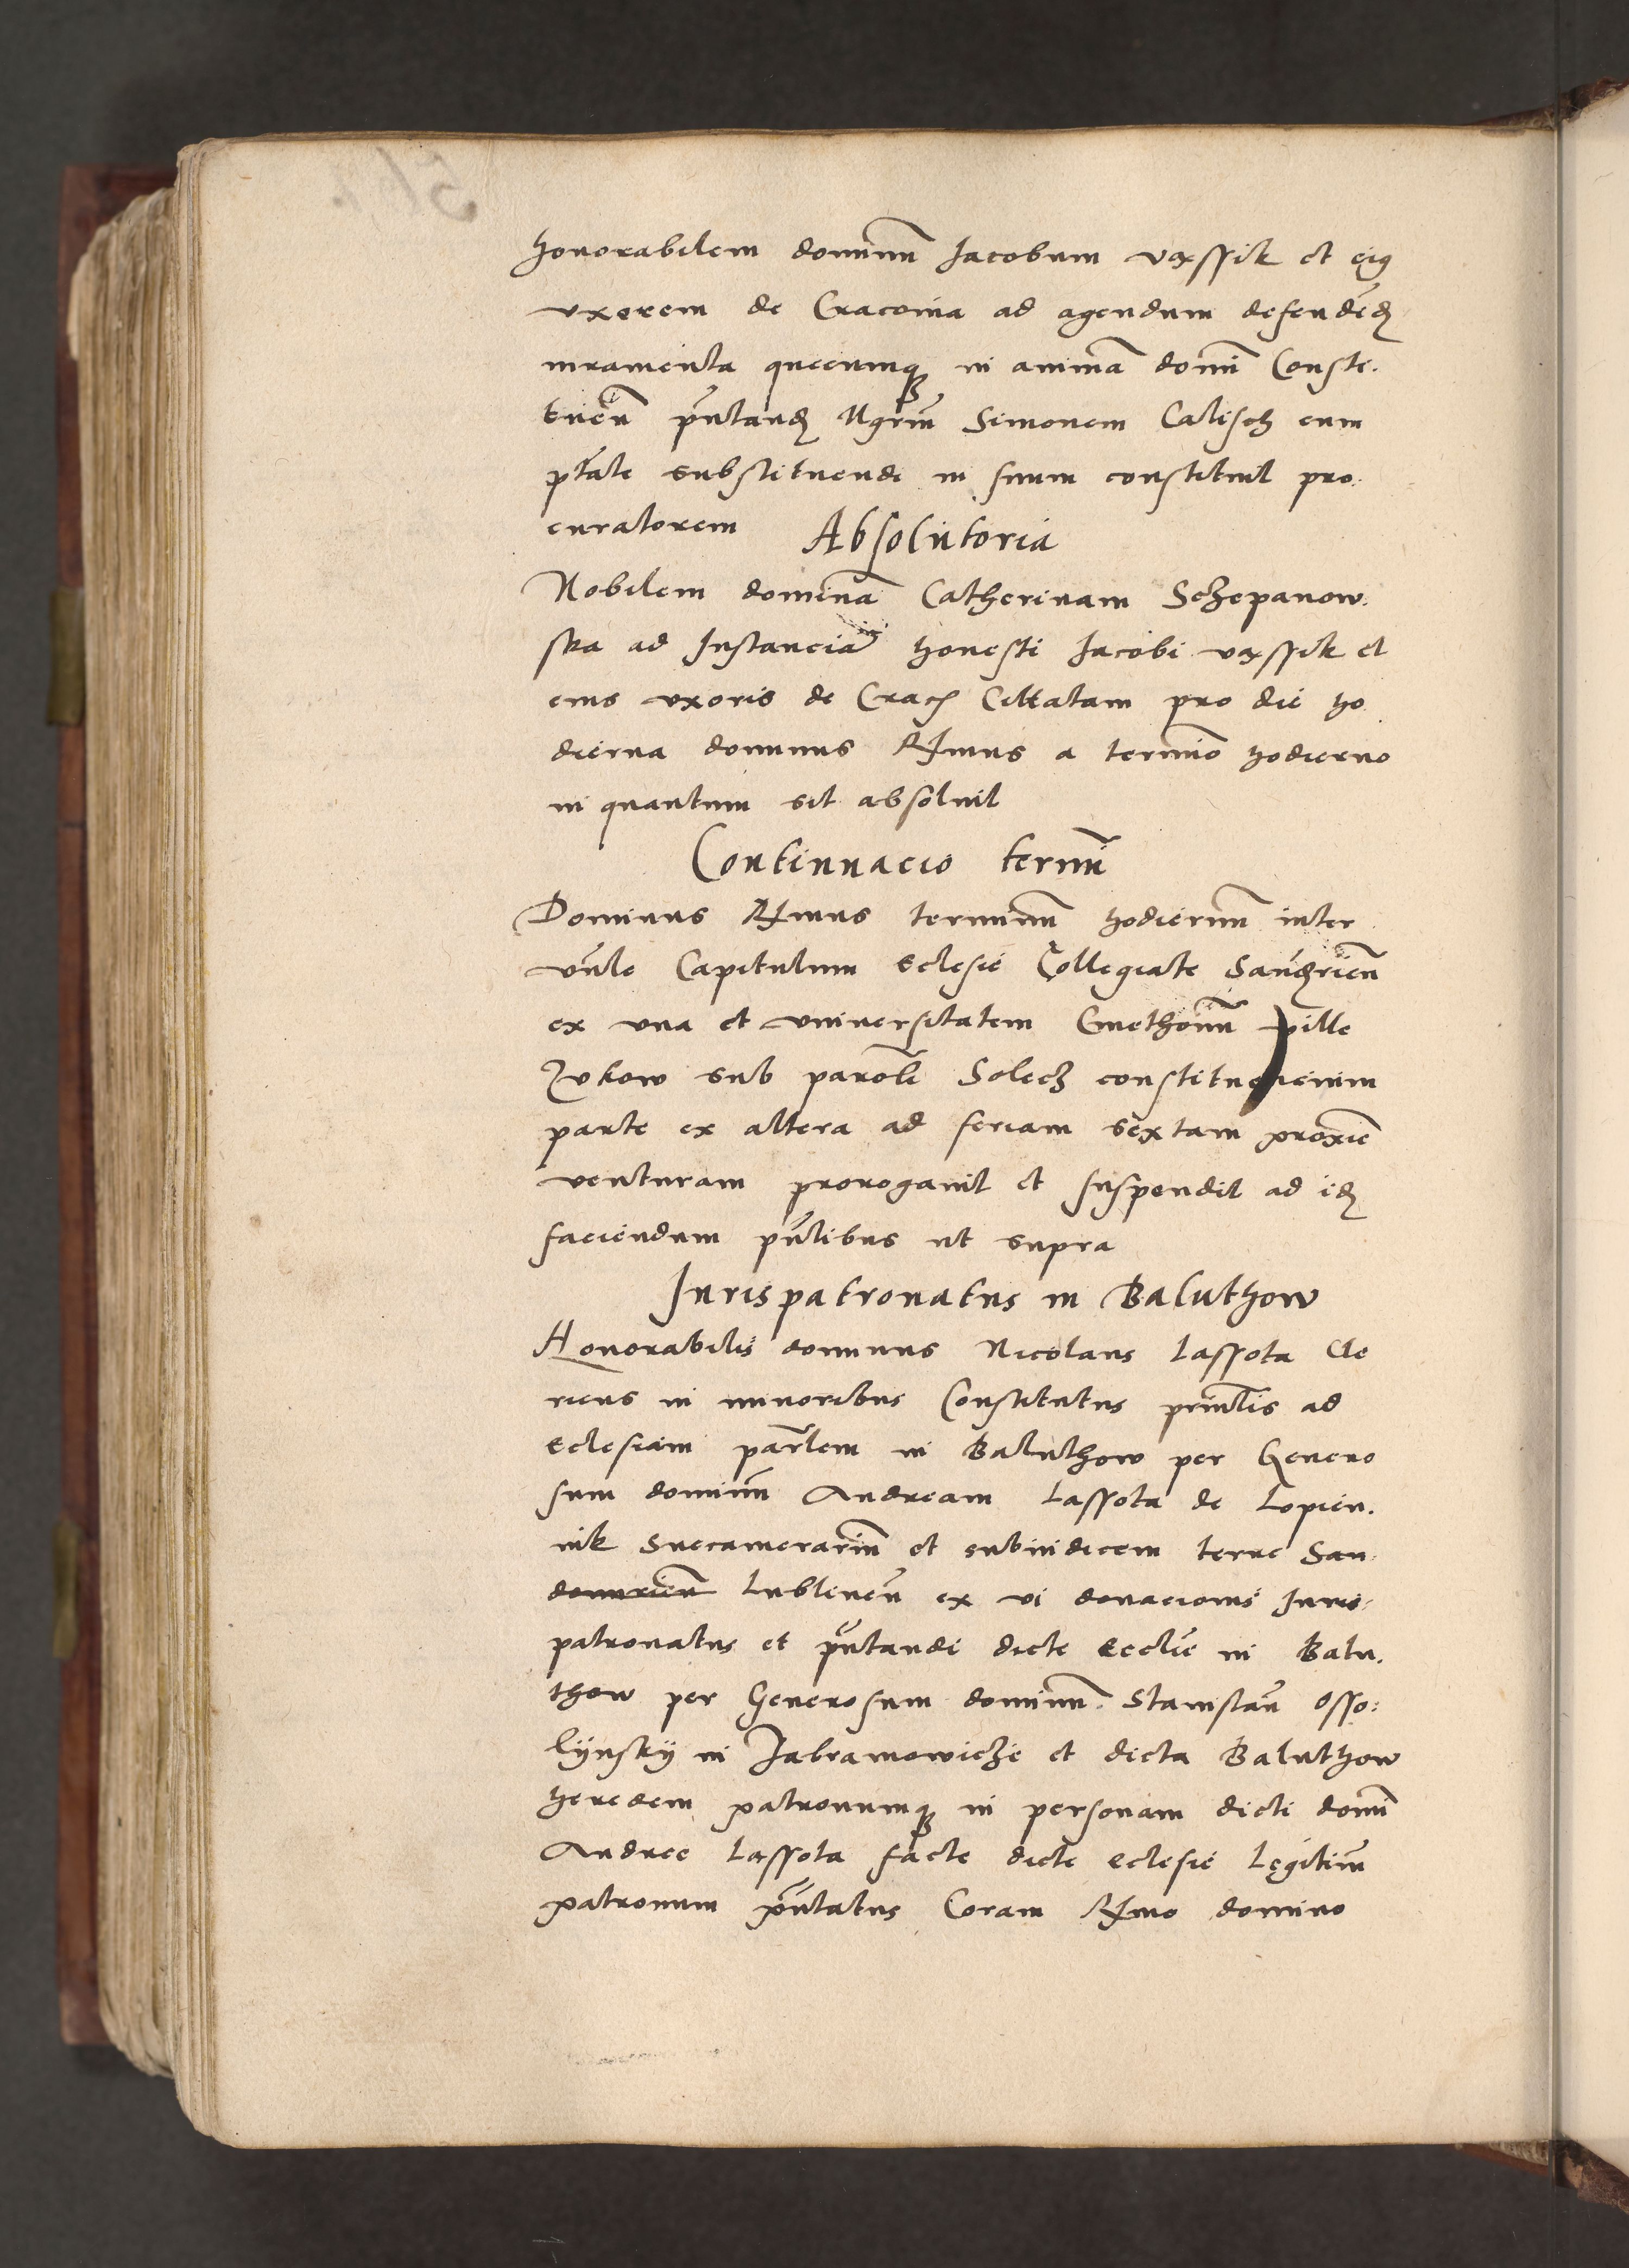 honorabilem dominũ Jacobum vąssik et eiꝯ
vxorem de Cracovia ad agendum defendẽdꝭ
iuramenta quecumqꝫ in animã domĩ Consti-
tuẽn p̃ntandꝭ Mgrũm Simonem Calisch cum
ptãte substituendi in suum constituit pro-
curatorem
Absolutoria
Nobilem dominã Catherinam Sczepanow-
ska ad Instanciã honesti Jacobi vąssik et
eius vxoris de Cracꝭ Cittatam pro die ho
dierna dominus Rꝭmus a termĩo hodierno
in quantum sit absoluit
Continuacio termĩ
Dominus Rꝭmus terminũ hodiernũ inter
vñle Capitulum Eclesie Collegiate Sandꝭriẽn
ex una et universitatem Cmethonũ ville
Zukow sub parolĩ Solecz constituencium
parte ex altera ad feriam sextam proxiẽ
venturam prorogavit et suspendit ad idꝭ
faciendum p̃ntibus ut supra
Jurispatronatus in Baluthow
Honorabilis dominus Nicolaus Lassota Cle
ricus in minoribus Constitutus prĩntis ad
Eclesiam par̃lem in Baluthow per Genero
sum dominũ Andream Lassota de Lopien-
nik Succamerariũ et subiudicem terre San-
domriẽn Lublinẽn ex vi donacionis Juris-
patronatus et p̃ntandi dicte ecclĩe in Balu-
thow per Generosum dominũ Stanislaũ Osso-
lÿnskÿ in Jabramowicze et dicta Baluthow
heredem patronumqꝫ in personam dicti domĩ
Andree Lassota facte dicte eclesie Legitiũm
patronum p̃ntatus Coram Rꝭmo domino